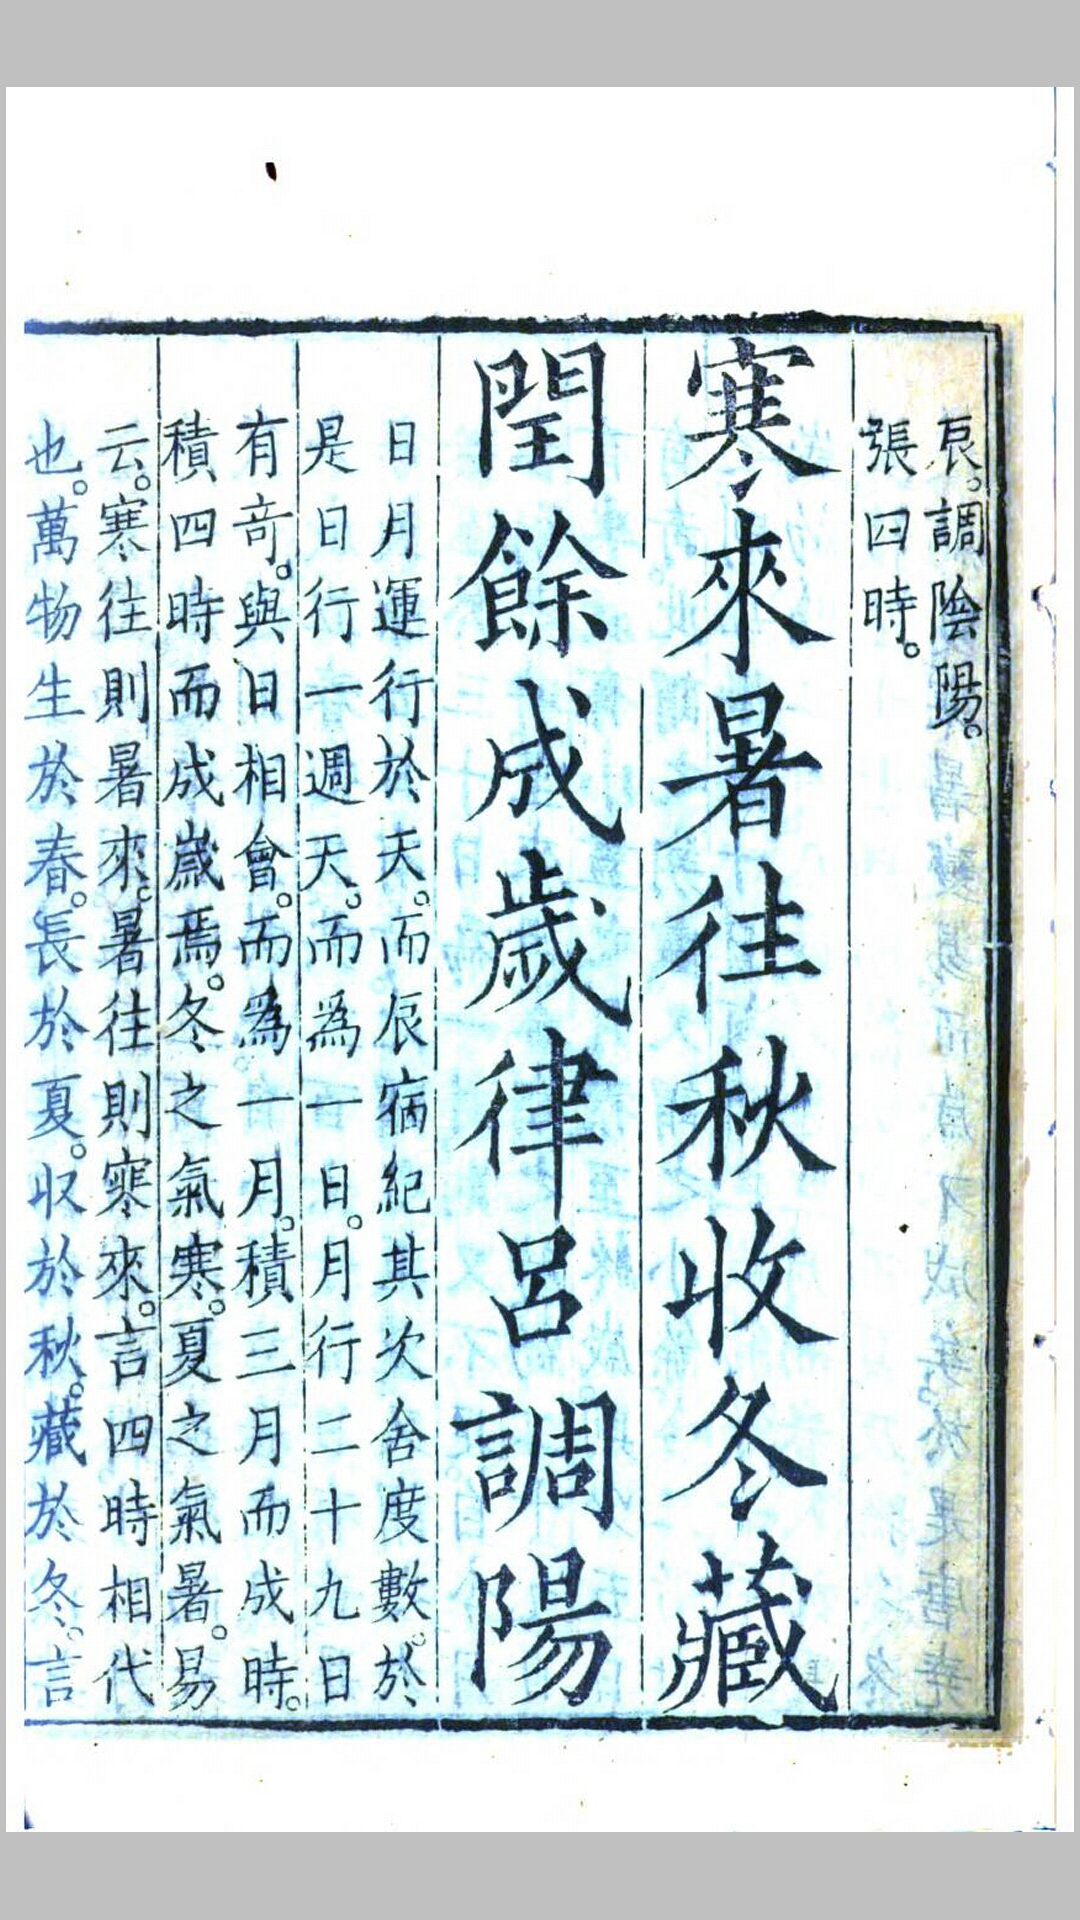 辰。調陰陽。
張四時。
寒來暑往秋收冬藏
閏餘成歲律呂調陽
日月運行於天。而辰宿紀其次舍度數。於
是日行一週天。而為一日。月行二十九日
有奇。與日相會。而為一月。積三月而成時。
積四時而成歲焉。冬之氣寒。夏之氣暑。易
云。寒往則暑來。暑往則寒來。言四時相代
也。萬物生於春。長於夏。収於秋。藏於冬。言